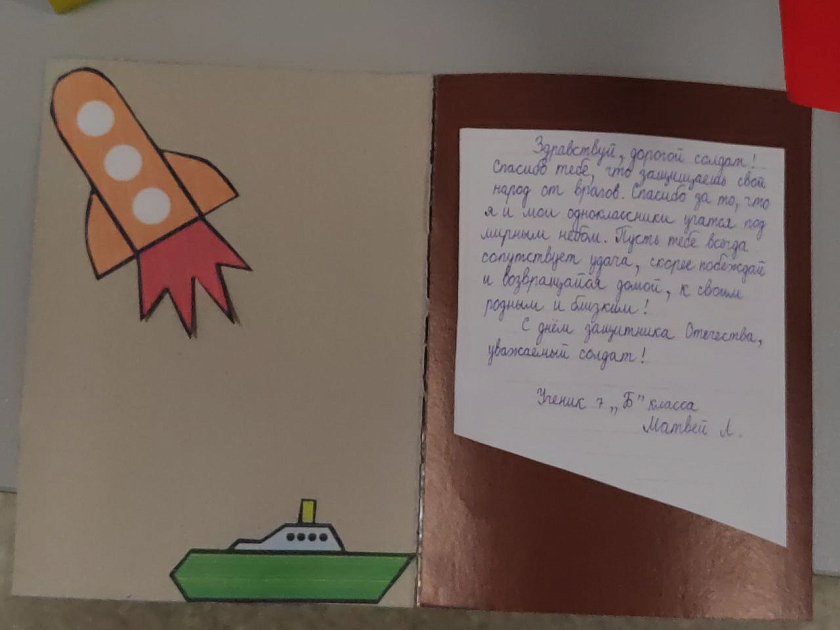 Здравствуй, дорогой солдат!
Спасибо тебе, что защищаешь свой
народ от врагов. Спасибо за то, что
я и мои одноклассники учатся под
мирным небом. Пусть тебе всегда
сопутствует удача, скорее побеждай
и возвращайся домой, к своим
родным и близким!
С днём защитника Отечества,
уважаемый солдат!
Ученик 7 „Б" класса
Матвей Л.